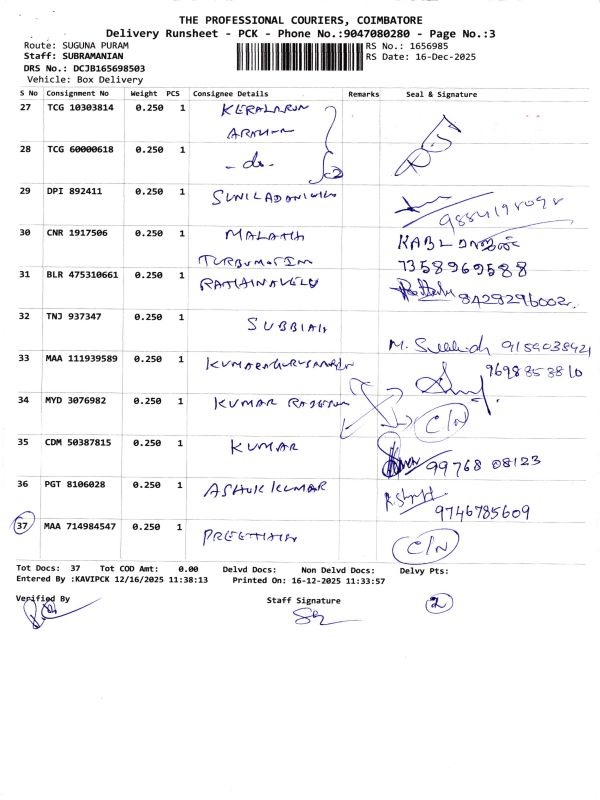 THE PROFESSIONAL COURIERS, COIMBATORE
Delivery Runsheet - PCK - Phone No.:9047080280 - Page No.:3
Route: SUGUNA PURAM RS No.: 1656985
Staff: SUBRAMANIAN RS Date: 16-Dec-2025
DRS No.: DCJB165698503
Vehicle: Box Delivery
S No Consignment No Weight PCS Consignee Details Remarks Seal & Signature
27 TCG 10303814 0.250 1
28 TCG 60000618 0.250 1 - do -
29 DPI 892411 0.250 1
30 CNR 1917506 0.250 1 MALATHI KABL
7358969588
31 BLR 475310661 0.250 1 RATHINAVELU 8428296002
32 TNJ 937347 0.250 1 SUBBIAH
33 MAA 111939589 0.250 1 9698853810
34 MYD 3076982 0.250 1 KUMAR C/N
35 CDM 50387815 0.250 1 KUMAR 99768 08123
36 PGT 8106028 0.250 1 ASHOK KUMAR
9746785609
37 MAA 714984547 0.250 1 C/N
Tot Docs: 37 Tot COD Amt: 0.00 Delvd Docs: Non Delvd Docs: Delvy Pts:
Entered By :KAVIPCK 12/16/2025 11:38:13 Printed On: 16-12-2025 11:33:57
Verified By Staff Signature 2